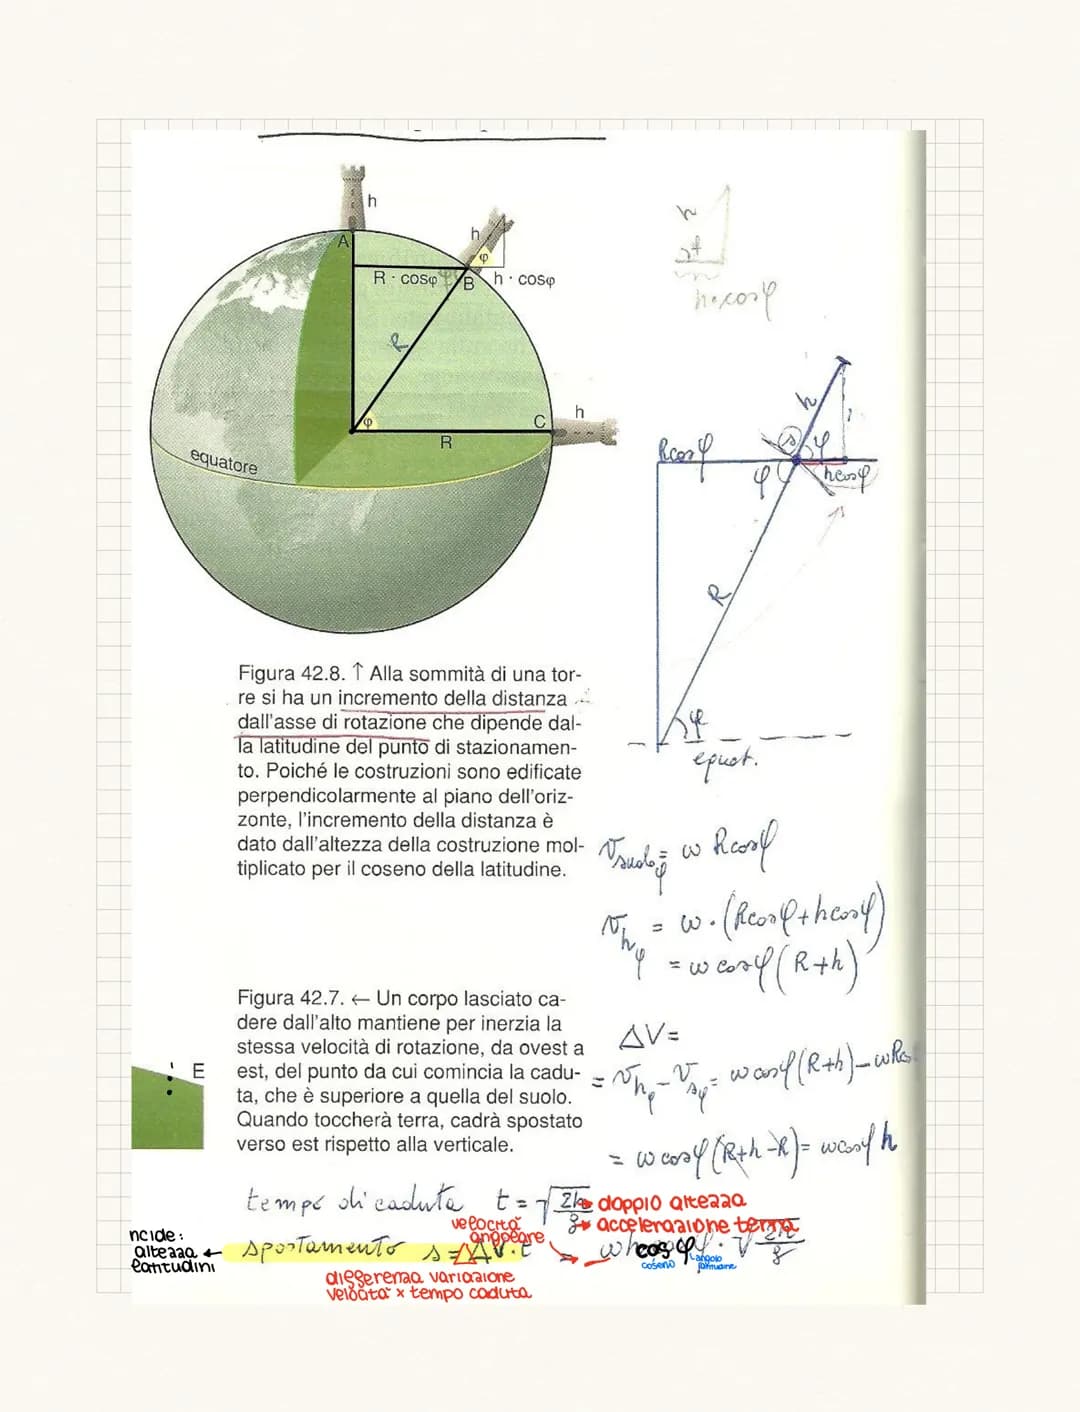 h
A
h
φ
R · cosφ
B
h · cosφ
R
φ
C
h
R
equatore
h
h·cosφ
h
Rcosφ
φ
φ
hcosφ
R
φ
equat.
Figura 42.8. ↑ Alla sommità di una tor-
re si ha un incremento della distanza
dall'asse di rotazione che dipende dal-
la latitudine del punto di stazionamen-
to. Poiché le costruzioni sono edificate
perpendicolarmente al piano dell'oriz-
zonte, l'incremento della distanza è
dato dall'altezza della costruzione mol-
tiplicato per il coseno della latitudine.
Vsuolo φ = ω Rcosφ
Vh φ = ω·(Rcosφ+hcosφ)
= ω cosφ (R+h)
Figura 42.7. ← Un corpo lasciato ca-
dere dall'alto mantiene per inerzia la
stessa velocità di rotazione, da ovest a
est, del punto da cui comincia la cadu-
ta, che è superiore a quella del suolo.
Quando toccherà terra, cadrà spostato
verso est rispetto alla verticale.
E
ΔV=
= Vh φ - Vs φ = ω cosφ (R+h) - ωRcos
= ω cosφ (R+h-R) = ωcosφ h
tempo di caduta t = √2h/g
doppio altezza
accelerazione terra
velocità
angolare
ncide:
altezza ←
latitudini
spostamento s = ΔV·t = ωh cosφ · √2h/g
coseno
angolo
differenza variazione
velocità x tempo caduta